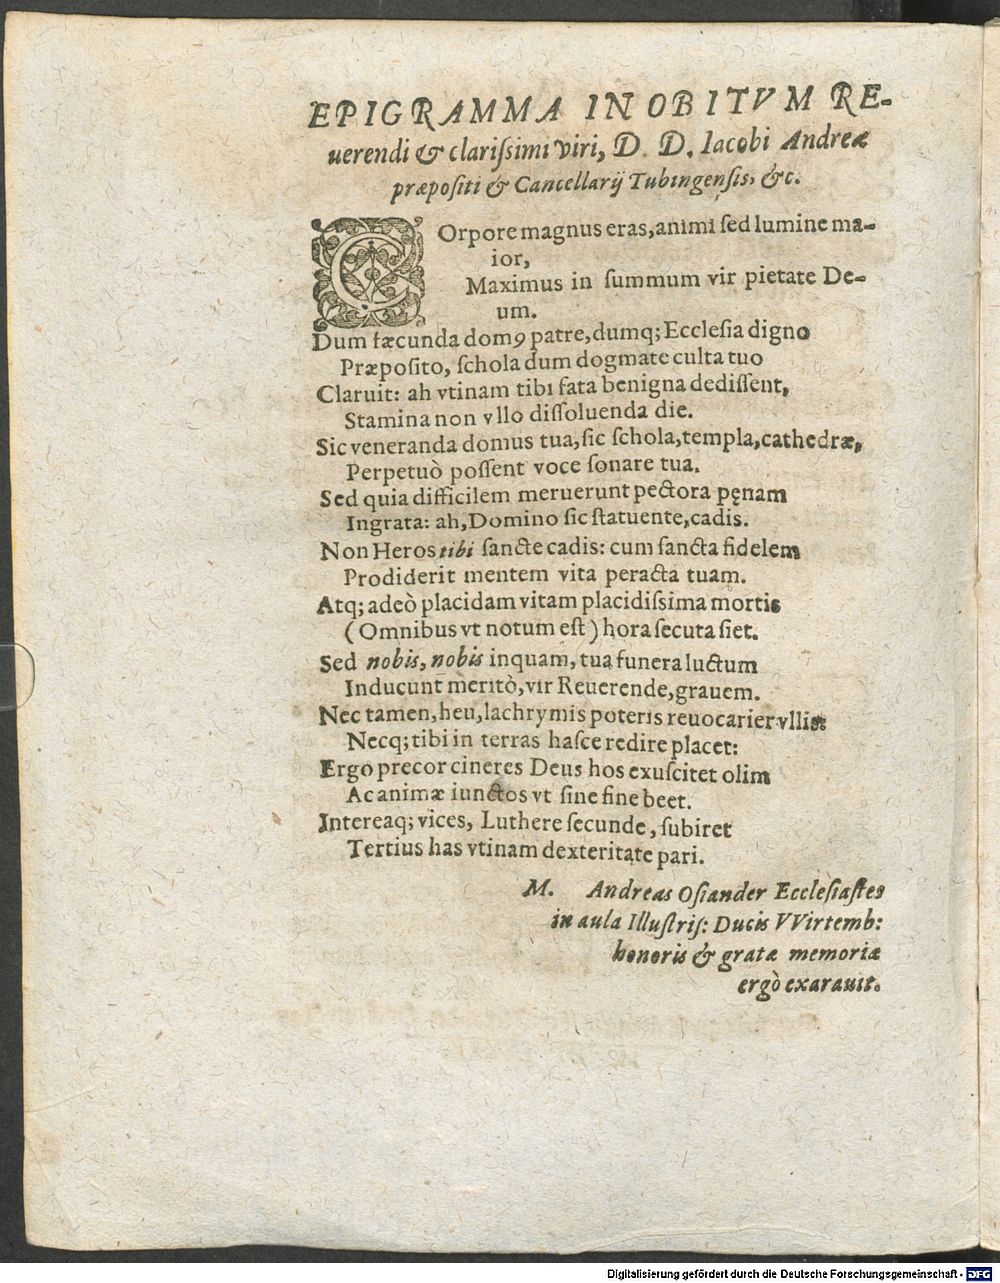 EPIGRAMMA IN OBITVM RE-
uerendi & clariſsimi viri, D. D. Iacobi Andreæ
præpoſiti & Cancellarij Tubingenſis, &c.
COrpore magnus eras, animi ſed lumine ma-
ior,
Maximus in ſummum vir pietate De-
um.
Dum fæcunda domꝰ patre, dumq; Eccleſia digno
Præpoſito, ſchola dum dogmate culta tuo
Claruit: ah vtinam tibi fata benigna dediſſent,
Stamina non vllo diſſoluenda die.
Sic veneranda domus tua, ſic ſchola, templa, cathedræ,
Perpetuò poſſent voce ſonare tua.
Sed quia difficilem meruerunt pectora pęnam
Ingrata: ah, Domino ſic ſtatuente, cadis.
Non Heros tibi ſancte cadis: cum ſancta fidelem
Prodiderit mentem vita peracta tuam.
Atq; adeò placidam vitam placidiſsima mortis
(Omnibus vt notum eſt) hora ſecuta ſiet.
Sed nobis, nobis inquam, tua funera luctum
Inducunt meritò, vir Reuerende, grauem.
Nec tamen, heu, lachrymis poteris reuocarier vllis:
Necq; tibi in terras haſce redire placet:
Ergo precor cineres Deus hos exuſcitet olim
Ac animæ iunctos vt ſine fine beet.
Intereaq; vices, Luthere ſecunde, ſubiret
Tertius has vtinam dexteritate pari.
M. Andreas Oſiander Eccleſiaſtes
in aula Illuſtriſ: Ducis VVirtemb:
honoris & gratæ memoriæ
ergò exarauit.
Digitalisierung gefördert durch die Deutsche Forschungsgemeinschaft - DFG